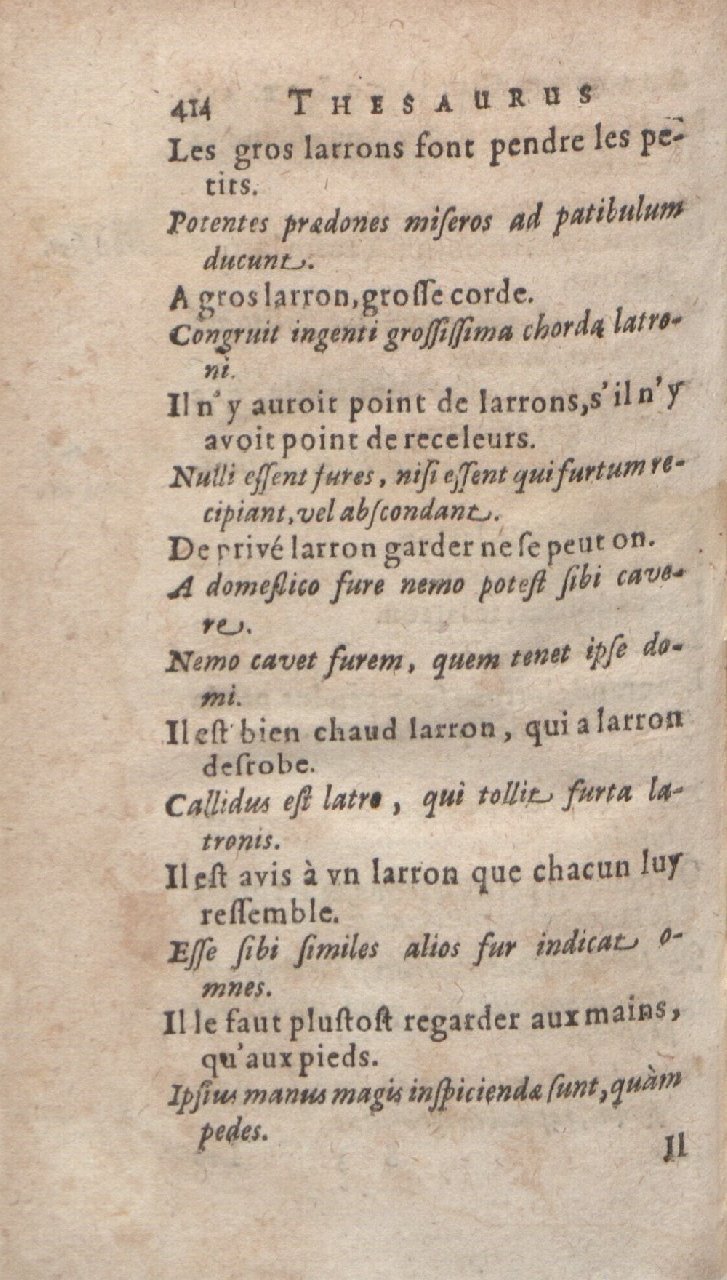 414 THESAURUS
Les gros larrons font pendre les pe-
tits.
Potentes prædones miſeros ad patibulum
ducunt.
A gros larron, groſſe corde.
Congruit ingenti groſſiſſima chorda latro-
ni.
Il n'y auroit point de larrons, s'il n'y
avoit point de receleurs.
Nulli eſſent fures, niſi eſſent qui furtum re-
cipiant, vel abſcondant.
De privé larron garder ne ſe peut on.
A domeſtico fure nemo poteſt ſibi cave-
re.
Nemo cavet furem, quem tenet ipſe do-
mi.
Il eſt bien chaud larron, qui a larron
deſrobe.
Callidus eſt latro, qui tollit furta la-
tronis.
Il eſt avis à vn larron que chacun luy
reſſemble.
Eſſe ſibi ſimiles alios fur indicat o-
mnes.
Il le faut pluſtoſt regarder aux mains,
qu'aux pieds.
Ipſius manus magis inſpiciendæ ſunt, quàm
pedes.
Il